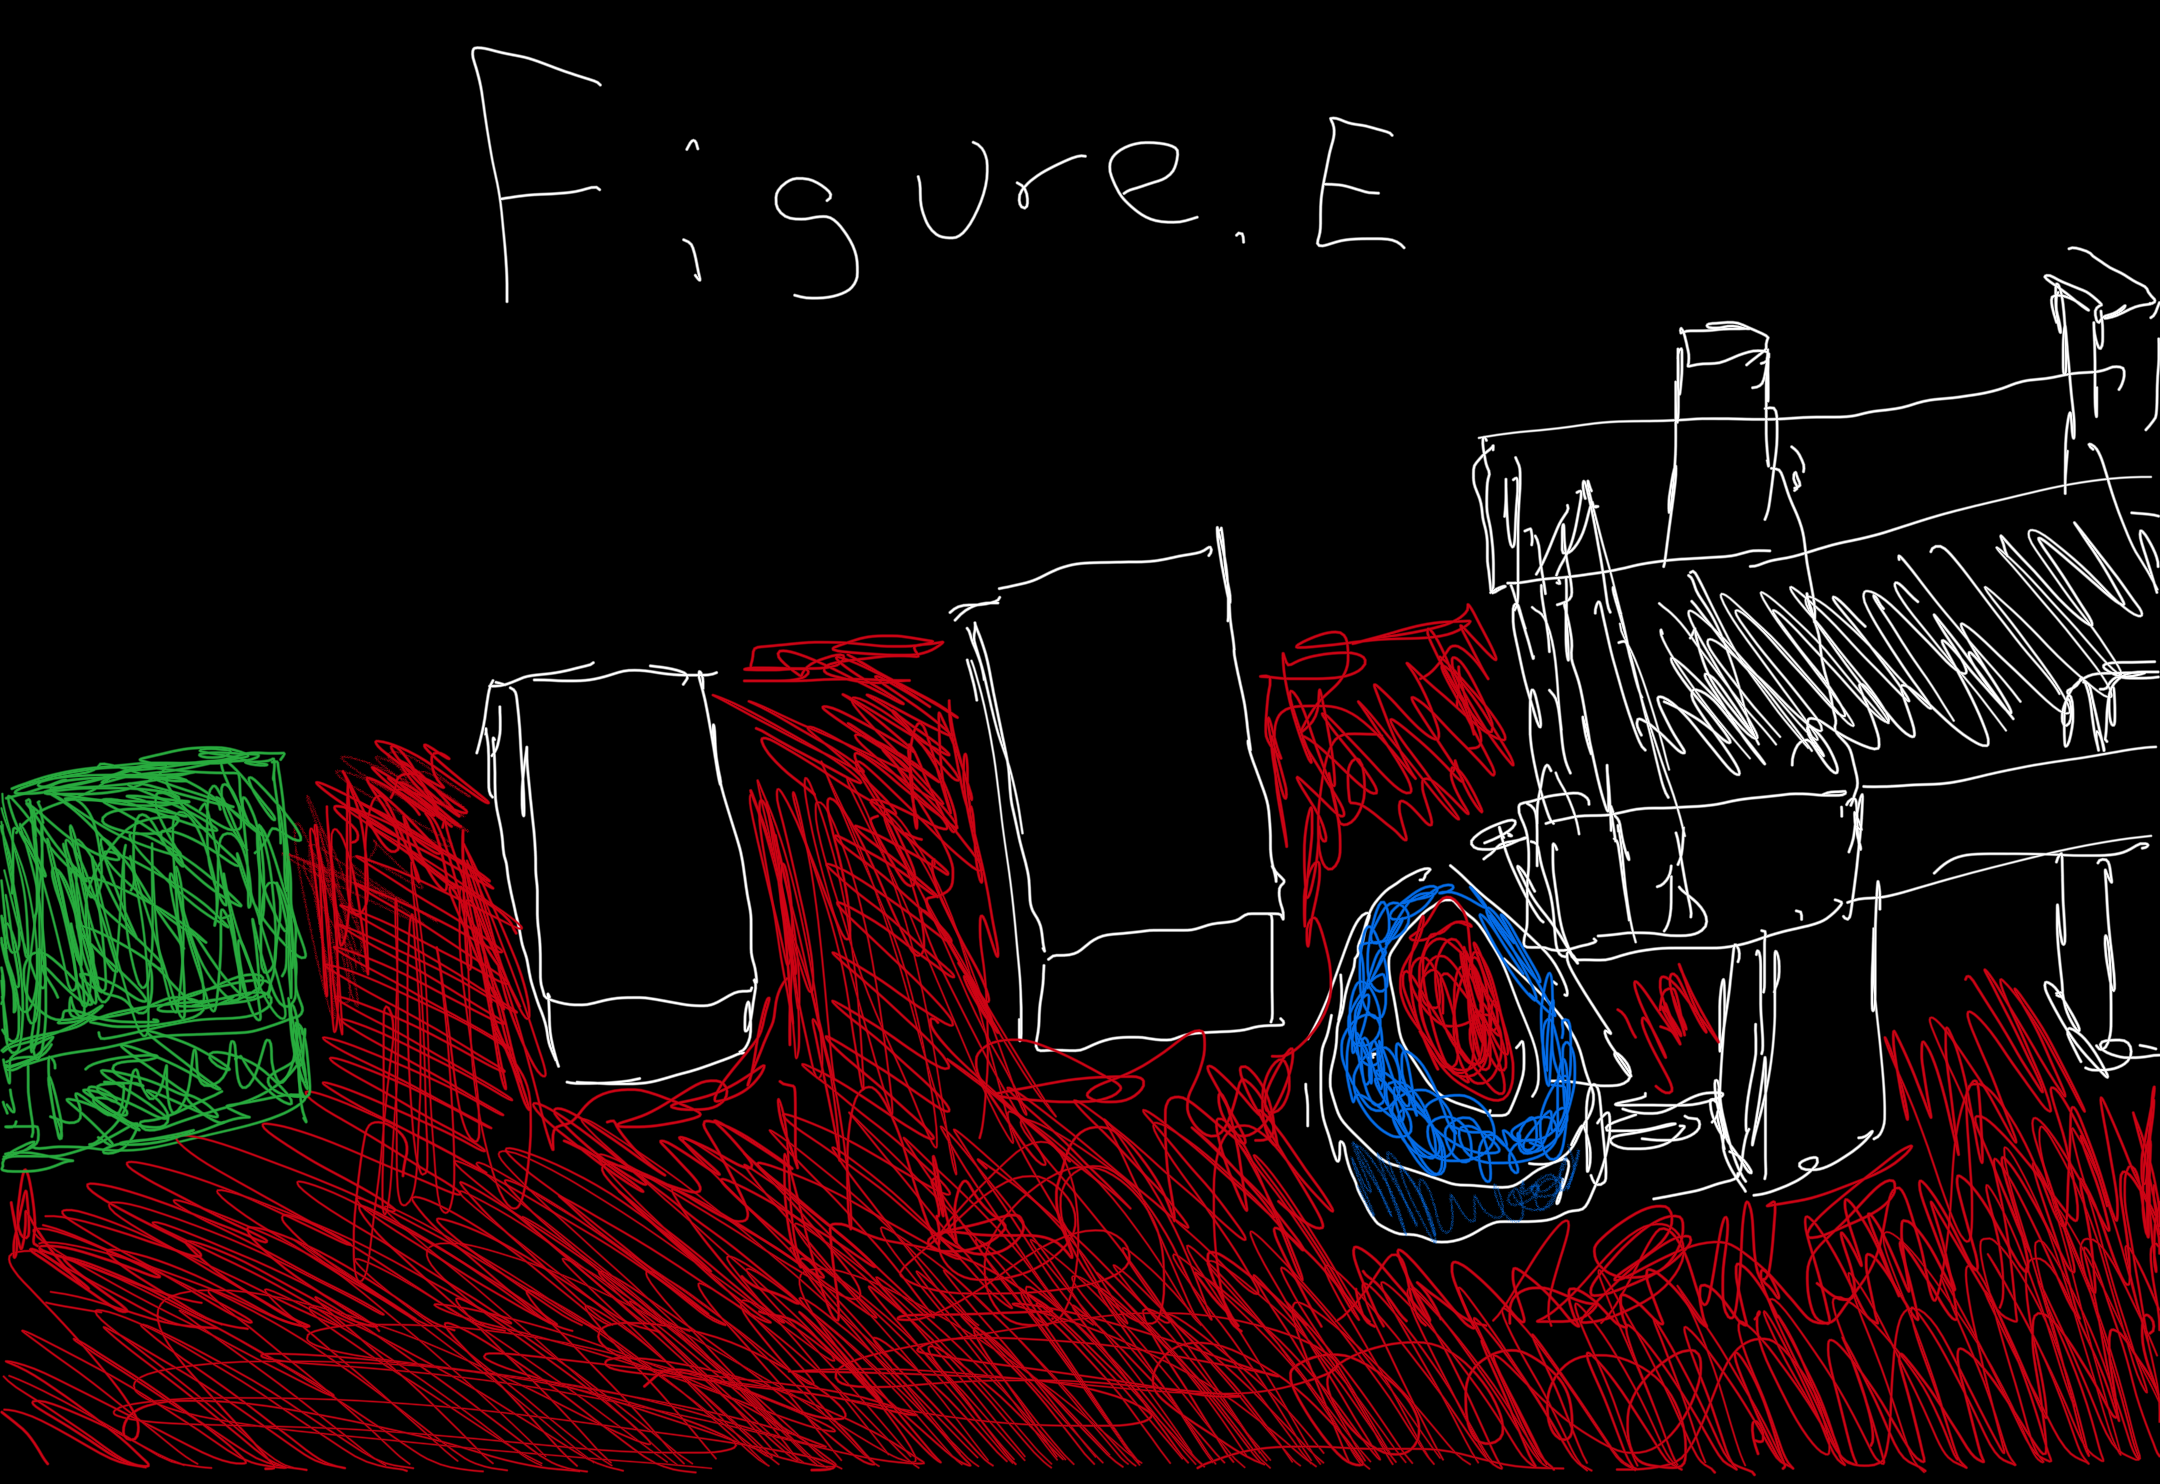 Figure. E